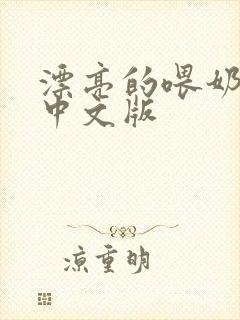 漂亮的喂奶
中文版
凉重明